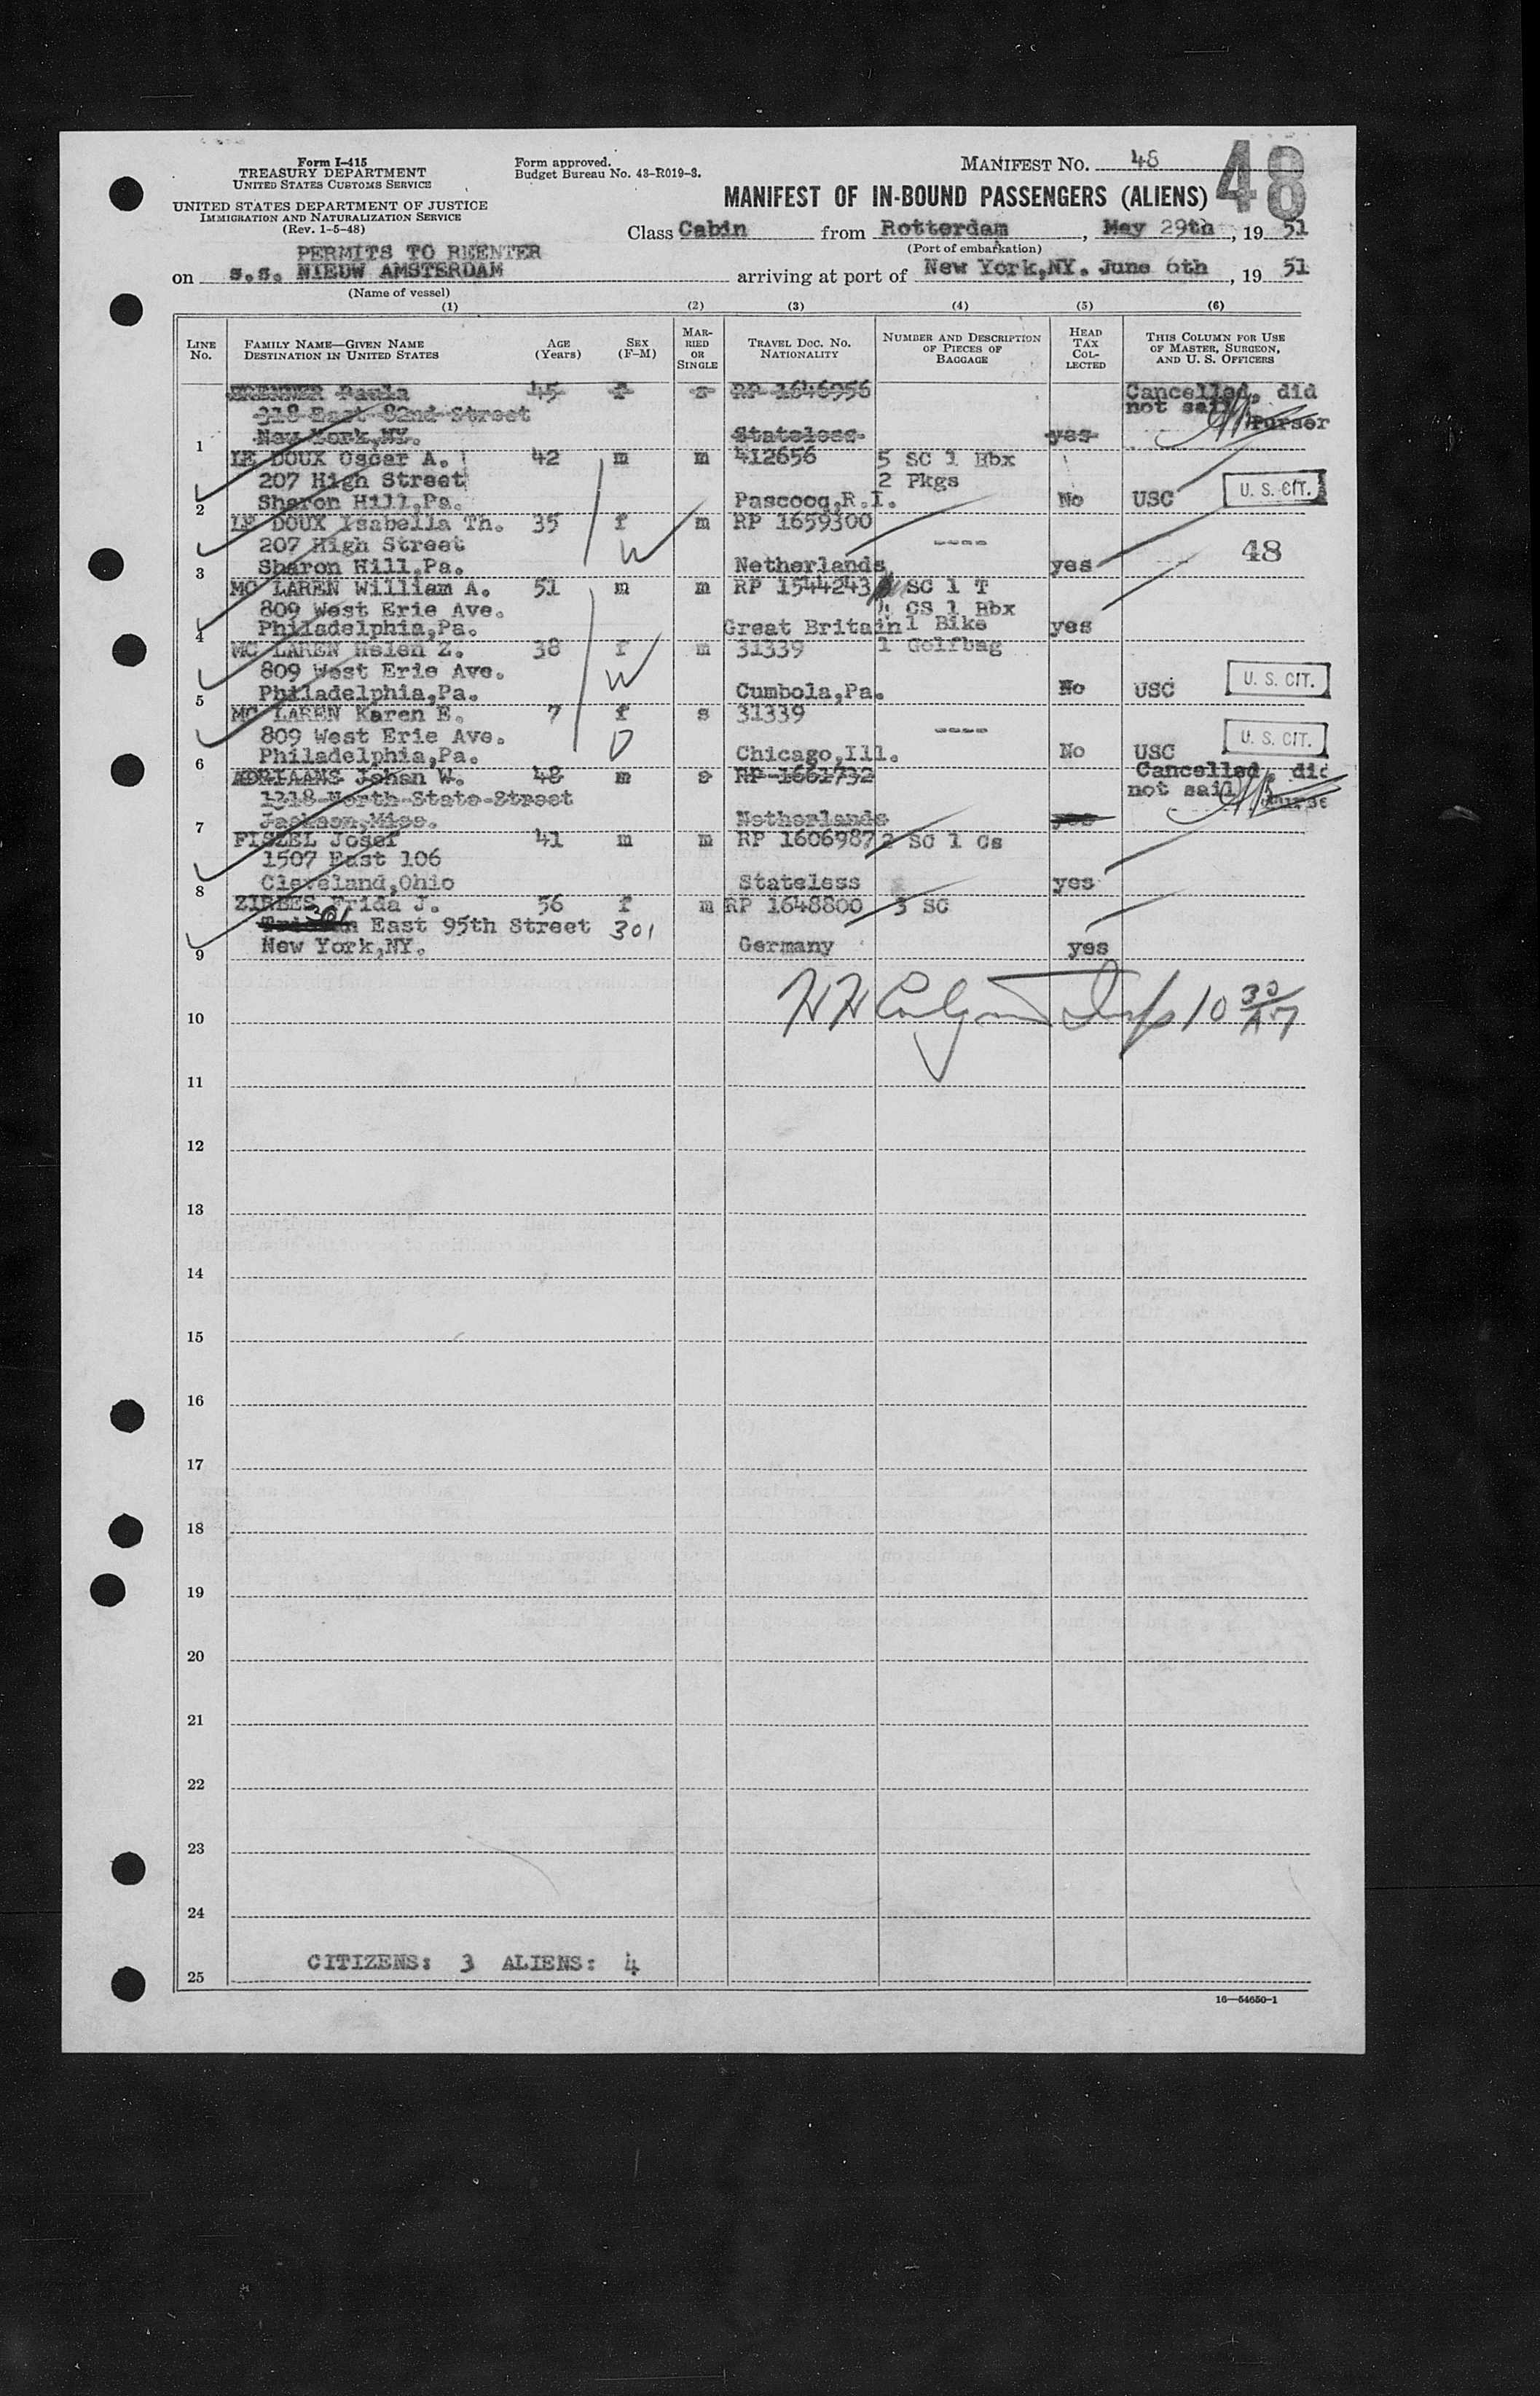 Form I-415
TREASURY DEPARTMENT
UNITED STATES CUSTOMS SERVICE
UNITED STATES DEPARTMENT OF JUSTICE
IMMIGRATION AND NATURALIZATION SERVICE
(Rev. 1-5-48)
Form approved.
Budget Bureau No. 43-R019-3.
MANIFEST NO. 48
48
MANIFEST OF IN-BOUND PASSENGERS (ALIENS)
Class Cabin from Rotterdam, May 29th, 19 51
(Port of embarkation)
PERMITS TO REENTER
on s.s. NIEUW AMSTERDAM arriving at port of New York,NY. June 6th, 19 51
(Name of vessel)
(1) (2) (3) (4) (5) (6)
LINE NO. FAMILY NAME—GIVEN NAME DESTINATION IN UNITED STATES AGE (Years) SEX (F-M) MARRIED OR SINGLE TRAVEL DOC. NO. NATIONALITY NUMBER AND DESCRIPTION OF PIECES OF BAGGAGE HEAD TAX COLLECTED THIS COLUMN FOR USE OF MASTER, SURGEON, AND U. S. OFFICERS
BRENNER Paula 45 f s RP 1646956 Cancelled, did
318 East 82nd Street not sail
1 New York,NY. Stateless yes Purser
LE DOUX Oscar A. 42 m m 412656 5 SC 1 Hbx
207 High Street 2 Pkgs
2 Sharon Hill,Pa. Pascoog,R.I. No USC U. S. CIT.
LE DOUX Isabella Th. 35 f m RP 1659300
207 High Street W ---- 48
3 Sharon Hill,Pa. Netherlands yes
MC LAREN William A. 51 m m RP 1544243 SC 1 T
809 West Erie Ave. CS 1 Hbx
4 Philadelphia,Pa. Great Britain 1 Bike yes
MC LAREN Helen Z. 38 f m 31339 1 Golfbag
809 West Erie Ave. W
5 Philadelphia,Pa. Cumbola,Pa. No USC U. S. CIT.
MC LAREN Karen E. 7 f s 31339
809 West Erie Ave. D ----
6 Philadelphia,Pa. Chicago,Ill. No USC U. S. CIT.
ADRIAANS Johan W. 48 m s RP 1661732 Cancelled, did
1318 North State Street not sail
7 Jackson,Miss. Netherlands yes Purse
FISZEL Josef 41 m m RP 1606987 2 SC 1 Cs
1507 East 106
8 Cleveland,Ohio Stateless yes
ZIRBES Frida J. 56 f m RP 1648800 3 SC
301 East 95th Street 301
9 New York,NY. Germany yes
10 10 30
11
12
13
14
15
16
17
18
19
20
21
22
23
24
CITIZENS: 3 ALIENS: 4
25
16—54650-1